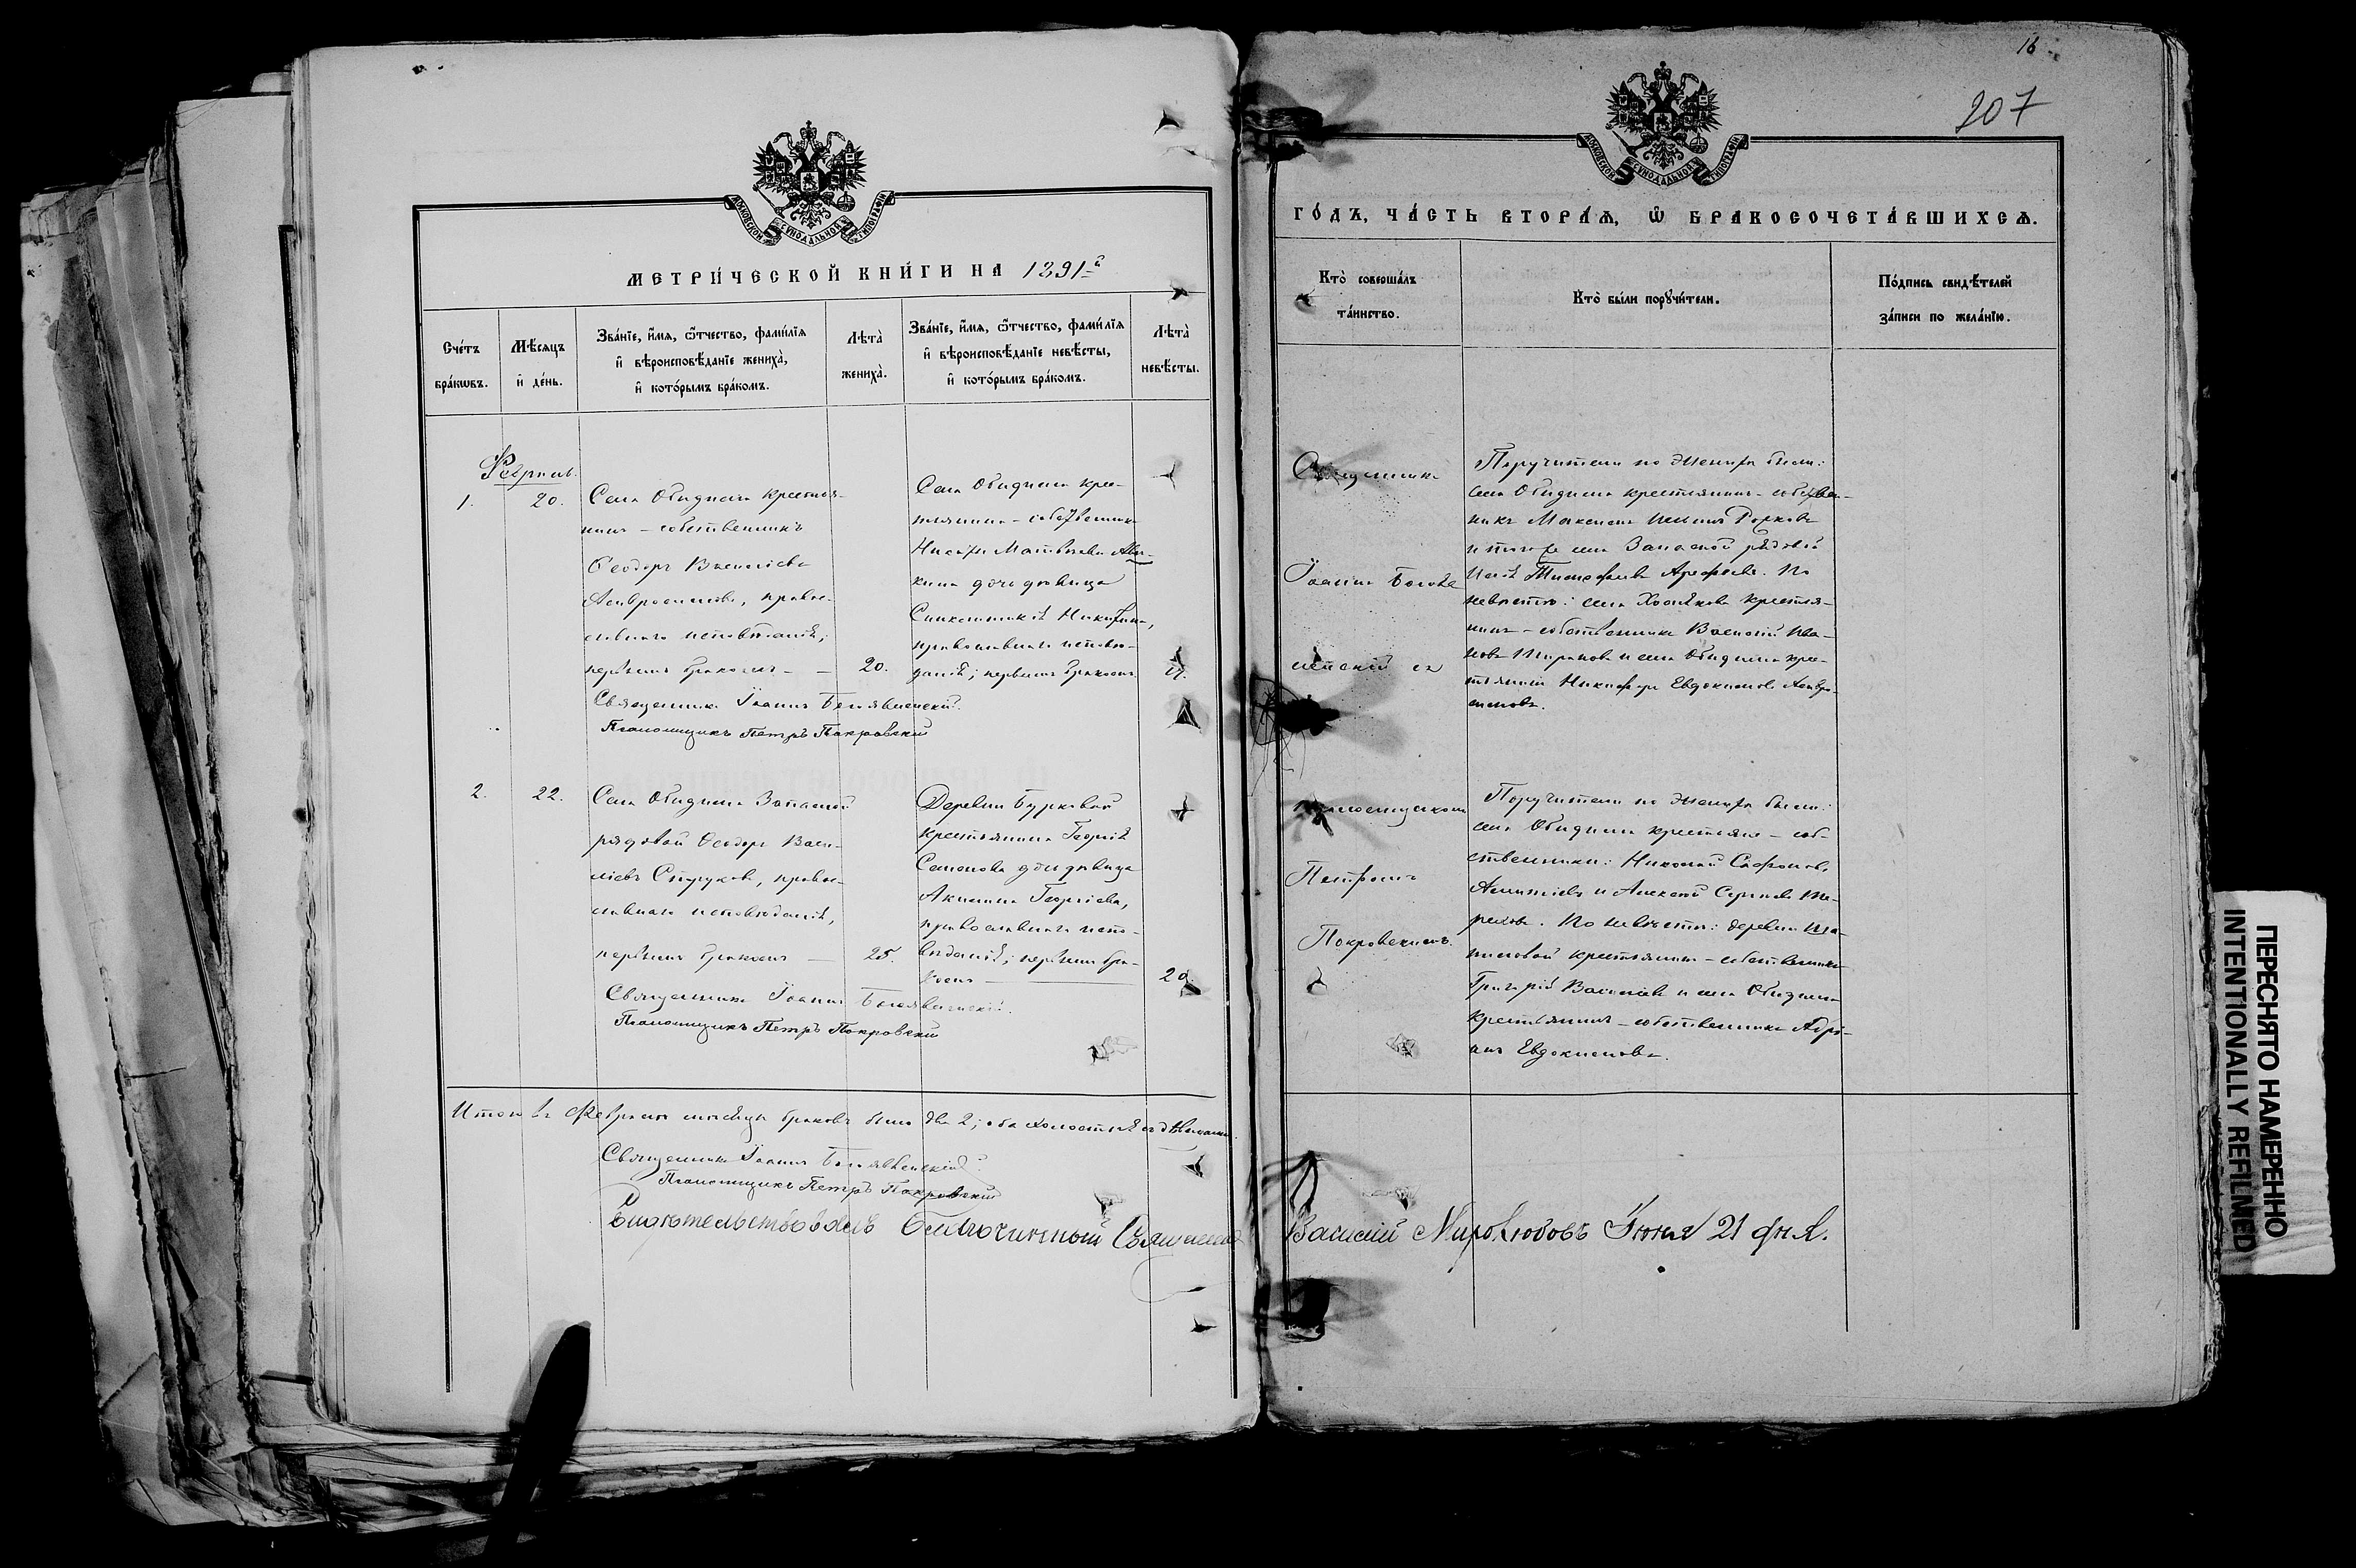 16
207
МОСКОВСКОЙ СУНОДАЛЬНОЙ ТИПОГРАФІИ
МЕТРИ́ЧЕСКОЙ КНИ́ГИ НА 1891 г
Сче́тъ бра́кѡвъ.
Мѣ́сяцъ и҆ де́нь.
Зва́нїе, и҆́мѧ, ѻ҆́тчество, фами́лїѧ
и҆ вѣроисповѣ́данїе жениха̀,
и҆ кото́рымъ бра́комъ.
Лѣта̀ жениха̀.
Зва́нїе, и҆́мѧ, ѻ҆́тчество, фами́лїѧ
и҆ вѣроисповѣ́данїе невѣ́сты,
и҆ кото́рымъ бра́комъ.
Лѣта̀ невѣ́сты.
Февраль
1.
20.
Села Обидима крестья-
нинъ – собственникъ
Ѳеодоръ Василіевъ
Амвросимовъ, право-
славнаго исповѣданія,
первымъ бракомъ
20.
Села Обидима кре-
стьянина – собственника
дочь дѣвица
православнаго исповѣ-
данія; первымъ бракомъ
Священникъ Іоаннъ Богоявленскій.
Псаломщикъ Петръ Покровскій
2.
22.
Села Обидима Запасной
рядовой Ѳеодоръ Васи-
ліевъ Струковъ, право-
славнаго исповѣданія,
первымъ бракомъ
25.
Деревни Бурковой
крестьянина Георгія
Семенова дочь дѣвица
Акилина Георгіева,
православнаго испо-
вѣданія; первымъ бра-
комъ
20.
Священникъ Іоаннъ Богоявленскій.
Псаломщикъ Петръ Покровскій
Итого въ Февралѣ мѣсяцѣ браковъ было два 2; оба холостыя съ дѣвицами.
Священникъ Іоаннъ Богоявленскій
Псаломщикъ Петръ Покровскій
Свидѣтельствовалъ Благочинный Священникъ
МОСКОВСКОЙ СУНОДАЛЬНОЙ ТИПОГРАФІИ
ГО́ДЪ, ЧА́СТЬ ВТОРА́Ѧ, Ѽ БРАКОСОЧЕТА́ВШИХСѦ.
Кто̀ соверша́лъ
та́инство.
Кто̀ бы́ли порꙋчи́тели.
По́дпись свидѣ́телей
за́писи по жела́нїю.
Священникъ
Іоаннъ Богояв-
ленскій съ
псаломщикомъ
Петромъ
Покровскимъ.
Поручители по женихѣ были:
села Обидима крестьянинъ – собствен-
никъ Максимъ
и того же села Запасной рядовой
Арефьевъ. По
невѣстѣ: села Хомяково крестья-
нинъ – собственникъ Василій Ива-
новъ и села Обидима кре-
стьянинъ Никифоръ Евдокимовъ Амвро-
симовъ.
Поручители по женихѣ были:
села Обидима крестьяне – соб-
ственники: Николай
и Алексѣй Сергѣевъ Те-
реховъ. По невѣстѣ: деревни
крестьянинъ – собственникъ
Григорій Василіевъ и села Обидима
крестьянинъ – собственникъ Адрі-
анъ Евдокимовъ.
Василій Миролюбовъ Іюня 21 дня.
ПЕРЕСНЯТО НАМЕРЕННО
INTENTIONALLY REFILMED